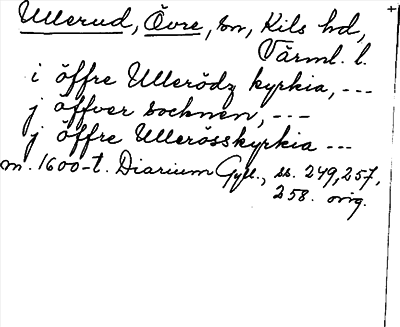 Ullerud, Övre, sn, Kils hd,
Värml. l.
i öffre Ullerödz kyrkia, ---
j öffver socknen, ---
j öffre Ullerösskyrkia ---
m. 1600-t. Diarium Gyll., ss. 249, 257,
258. orig.